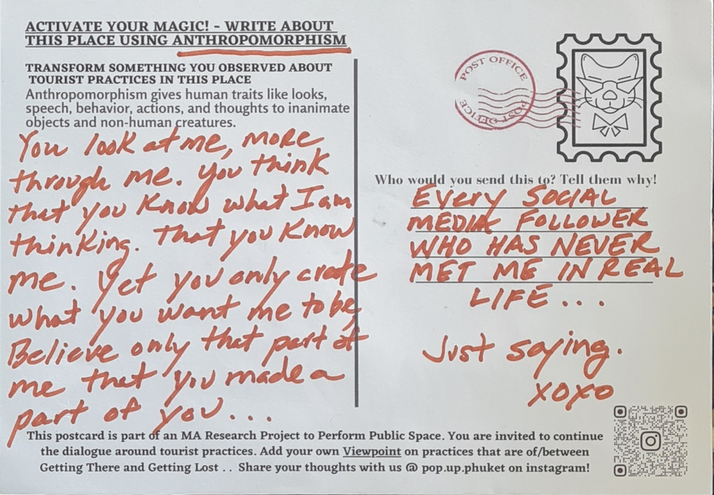 ACTIVATE YOUR MAGIC! - WRITE ABOUT
THIS PLACE USING ANTHROPOMORPHISM
TRANSFORM SOMETHING YOU OBSERVED ABOUT
TOURIST PRACTICES IN THIS PLACE
Anthropomorphism gives human traits like looks,
speech, behavior, actions, and thoughts to inanimate
objects and non-human creatures.
You look at me, more
through me. You think
that you know what I am
thinking. That you know
me. Yet you only create
what you want me to be,
Believe only that part of
me that you made a
part of you...
POST OFFICE
POST OFFICE
Who would you send this to? Tell them why!
EVERY SOCIAL
MEDIA FOLLOWER
WHO HAS NEVER
MET ME IN REAL
LIFE...
Just saying.
XOXO
This postcard is part of an MA Research Project to Perform Public Space. You are invited to continue
the dialogue around tourist practices. Add your own Viewpoint on practices that are of/between
Getting There and Getting Lost . . Share your thoughts with us @ pop.up.phuket on instagram!